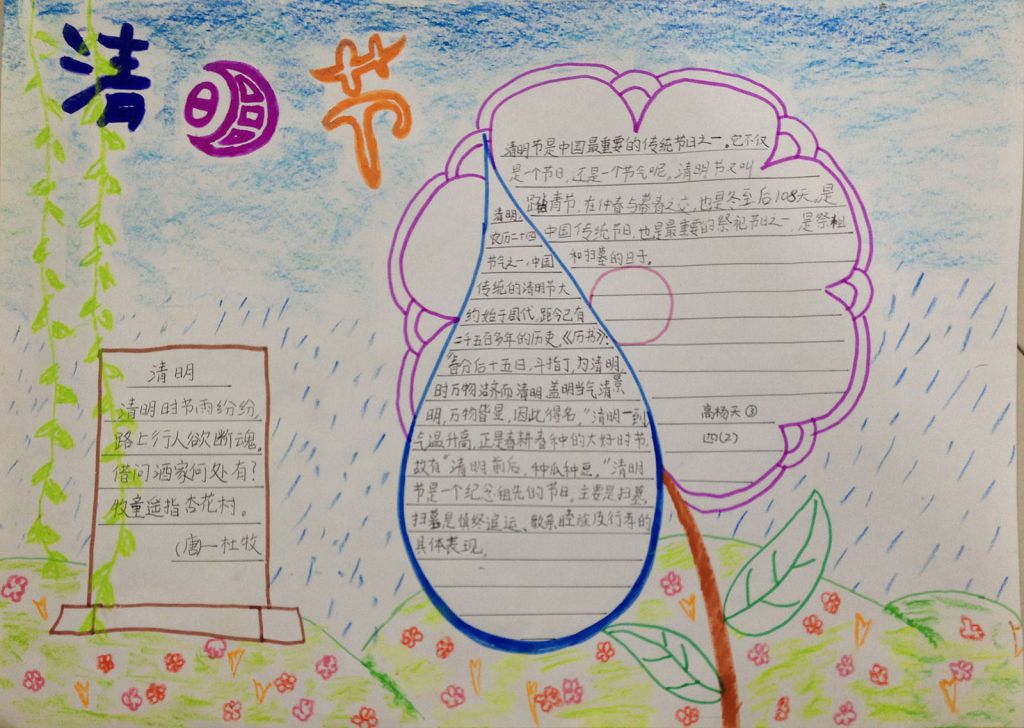 清明节
清明
清明时节雨纷纷,
路上行人欲断魂。
借问酒家何处有?
牧童遥指杏花村。
(唐一杜牧
清明节是中国最重要的传统节日之一。它不仅
是一个节日,还是一个节气呢。清明节又叫
踏青节,在仲春与暮春之交,也是冬至后108天。是
中国传统节日,也是最重要的祭祀节日之一,是祭祖
和扫墓的日子。
高杨天③
四(2)
清明,
农历二十四
节气之一,中国
传统的清明节大
约始于周代,距今已有
二千五百多年的历史,《历书》:
"春分后十五日,斗指丁,为清明,
时万物洁齐而清明,盖明当气清景
明,万物皆显,因此得名。"清明一到
气温升高,正是春耕春种的大好时节,
故有"清明前后,种瓜种豆。"清明
节是一个纪念祖先的节日。主要是扫墓,
扫墓是慎终追远、敦亲睦族及行孝的
具体表现。